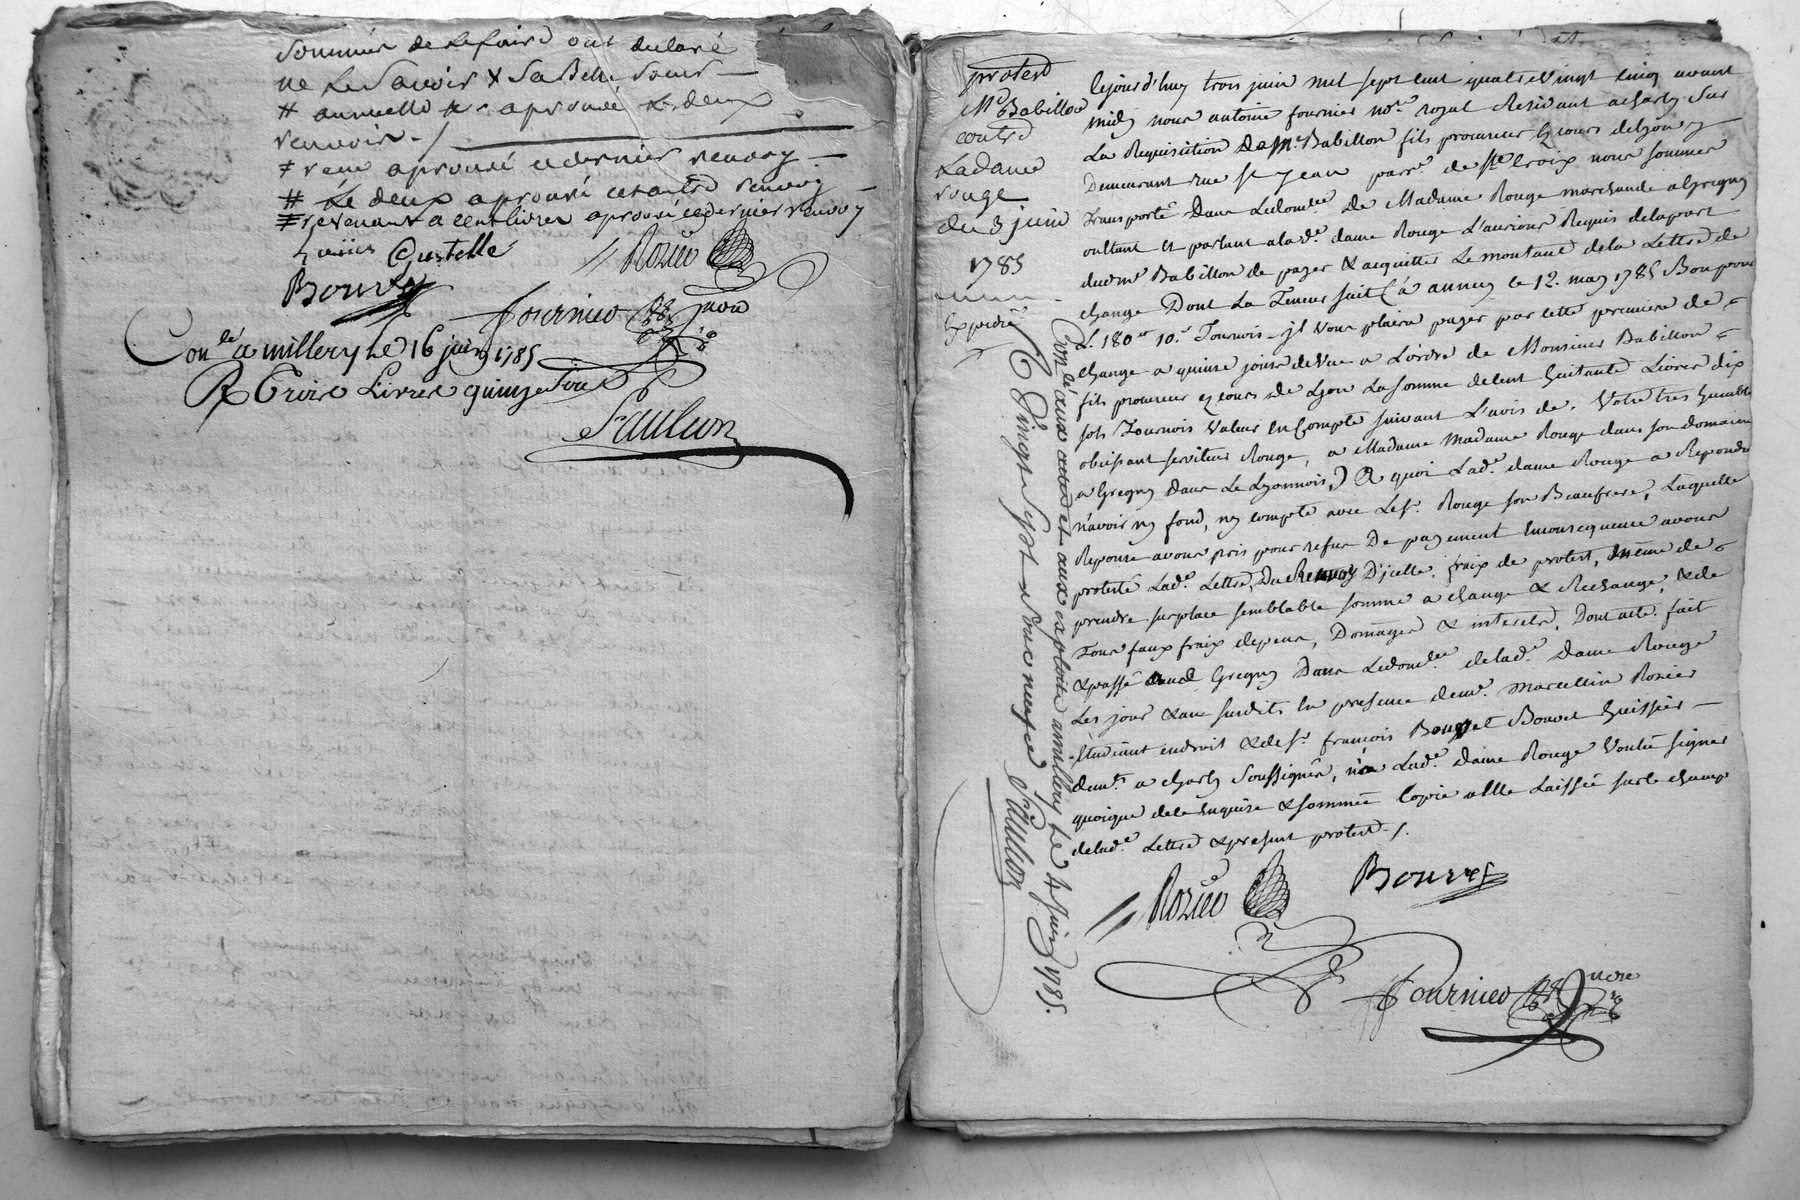 sommés de Lefaire ont declaré
ne Le Savoir X Sa Belle Soeur
# annuelle aprouvé Les deux
renvois ./.
≠ rene aprouvé cedernier renvoy
# Le deux aprouvé cet autre renvoy
≢ revenant a cent livres aprouvé ce dernier renvoy
Custelle // Rozier
Bouvet Fournier
Con.lé a millery Le 16 juin 1785
R Trois Livres quinze sous
Saulieon
protest
Mr Babillon
contre
La dame
rouge
du 3 juin
1785
Expedié
Con.lé aux actes et aux exploits a millery Le 4 Juin 1785.
R Vingt Sept sous neuf d Saulieon
Cejourd'huy trois juin mil sept cent quatre Vingt Cinq avant
midy nous antoine fournier no.re royal Residant a charly Sur
La Requisition de Mr Babillon fils procureur ez cours de Lyon y
Demeurant rue st Jean parr.e de ste Croix nous sommes
Transporté Dans Ledomcile De Madame Rouge marchande a Grigny
oultant et parlant a lad.e dame Rouge L'aurions Requis delapart
dudmr Babillon de payer & acquitter Le montant dela Lettre de
change Dont La Teneur suit (a annecy le 12. may 1785 Bon pour
L. 180 tt 10 s Tournois - jl Vous plaira payer par cette premiere de
change a quinze jours de Vue a L'ordre de Monsieur Babillon
fils procureur ez cours de Lyon La somme de Cent huitante Livres dix
sols Tournois Valeur En Compte suivant L'avis de. Votre tres humble
obeissant serviteur Rouge, a Madame Madame Rouge dans son domaine
a Gregny Dans Le Lyonnois,) A quoi Lad.e dame Rouge a Repondu
n'avoir ny fond, ny compte avec Le sr. Rouge son Beaufrere, Laquelle
Reponse avons pris pour refus De payement En consequence avons
protesté Lad.e Lettre, Du Renvoy D'jcelle, fraix de protest, même de
prendre sur place semblable somme a change & Rechange, & de
Tous faux fraix depens, Dommages & interets, Dont acte. fait
& passé aud Gregny Dans Ledom.le delad.e Dame Rouge
Les jour & an susdits En presence de mr. Marcellin Rozier
Etudiant en droit & de sr. françois Bouvet huissier
dem.ts a charly Soussignés, n'a Lad.e Dame Rouge Voulu signer
quoique dele Enquise & sommée Copie a Elle Laissée sur le champ
delad.e Lettre & present protest ./.
// Rozier Bouvet
Fournier